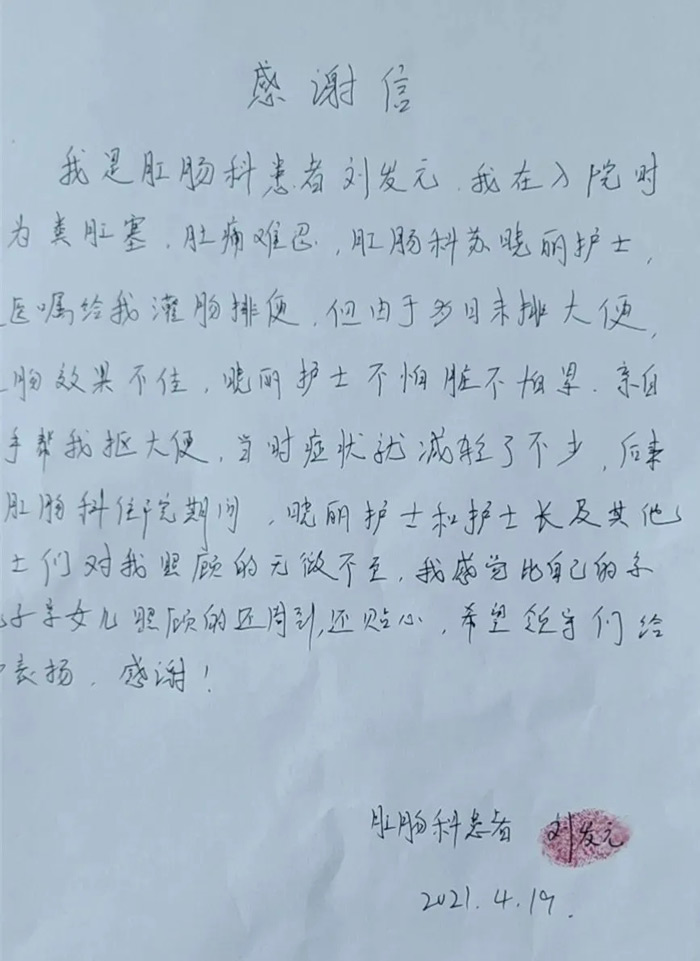 感谢信
我是肛肠科患者刘发元.我在入院时
为粪肛塞,肚痛难忍,肛肠科苏晓丽护士,
医嘱给我灌肠排便,但由于多日未排大便,
肠效果不佳,晓丽护士不怕脏不怕累.亲自
手帮我抠大便,当时症状就减轻了不少,后来
肛肠科住院期间,晓丽护士和护士长及其他
士们对我照顾的无微不至,我感觉比自己的亲
子亲女儿照顾的还周到,还贴心,希望领导们给
表扬,感谢!
肛肠科患者 刘发元
2021.4.19.